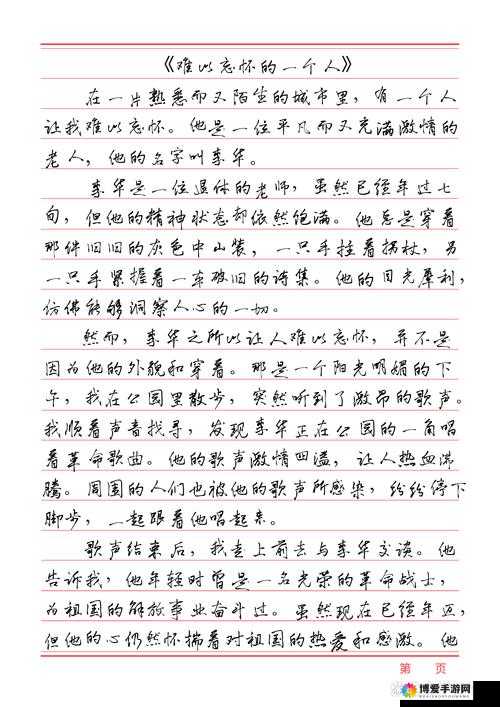 《难以忘怀的一个人》
在一片熟悉而又陌生的城市里，有一个人
让我难以忘怀。他是一位平凡而又充满激情的
老人，他的名字叫李华。
李华是一位退休的老师，虽然已经年过七
旬，但他的精神状态却依然饱满。他总是穿着
那件旧旧的灰色中山装，一只手拄着拐杖，另
一只手紧握着一本破旧的诗集。他的目光犀利，
仿佛能够洞察人心的一切。
然而，李华之所以让人难以忘怀，并不是
因为他的外貌和穿着。那是一个阳光明媚的下
午，我在公园里散步，突然听到了激昂的歌声。
我顺着声音找寻，发现李华正在公园的一角唱
着革命歌曲。他的歌声激情四溢，让人热血沸
腾。周围的人们也被他的歌声所感染，纷纷停下
脚步，一起跟着他唱起来。
歌声结束后，我走上前去与李华交谈。他
告诉我，他年轻时曾是一名光荣的革命战士，
为祖国的解放事业奋斗过。虽然现在已经年迈，
但他的心仍然怀揣着对祖国的热爱和感激。他
第 页
博爱手游网